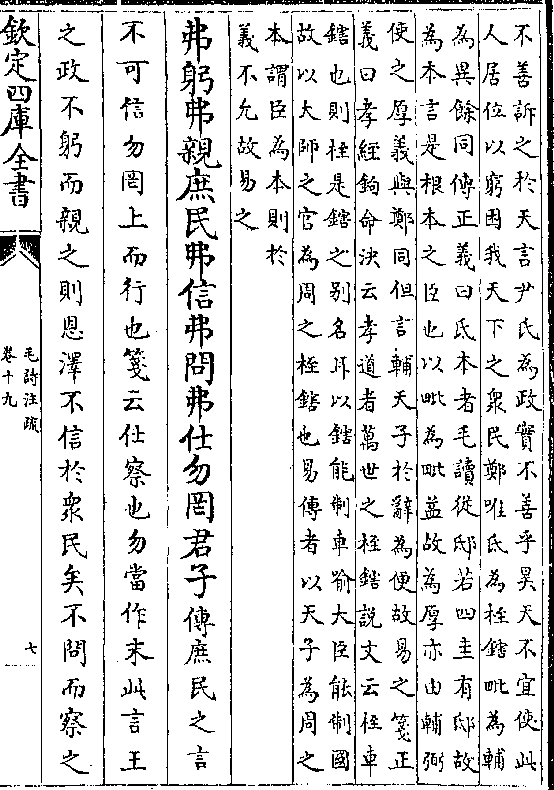 不善訴之於天言尹氏為政實不善乎昊天不宜使此
人居位以窮困我天下之衆民鄭唯氐為桎鎋毗為輔
為異餘同傳正義曰氐本者毛讀從邸若四圭有邸故
為本言是根本之臣也以毗為毗益故為厚亦由輔弼
使之厚義與鄭同但言輔天子於辭為便故易之箋正
義曰孝經鉤命決云孝道者萬世之桎鎋説文云桎車
鎋也則桎是鎋之别名耳以鎋能制車喻大臣能制國
故以大師之官為周之桎鎋也易傳者以天子為周之
本謂臣為本則於
義不允故易之
弗躬弗親庶民弗信弗問弗仕勿罔君子傳庶民之言
不可信勿罔上而行也箋云仕察也勿當作末此言王
之政不躬而親之則恩澤不信於衆民矣不問而察之
欽定四庫全書
毛詩注疏
卷十九
七